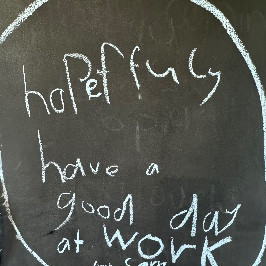 hopefuly
have a
good day
at work